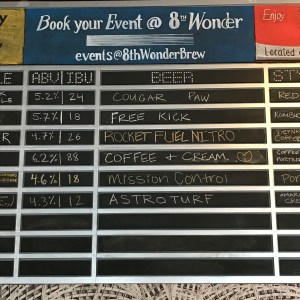 Book your Event @ 8th Wonder
events@8thWonderBrew
Enjoy
Located
ABV IBU BEER
5.2% 24 COUGAR PAW RED
5.7% 18 FREE KICK
4.7% 26 ROCKET FUEL NITRO
6.2% 88 COFFEE + CREAM
4.6% 18 Mission Control
4.3% 12 ASTROTURF